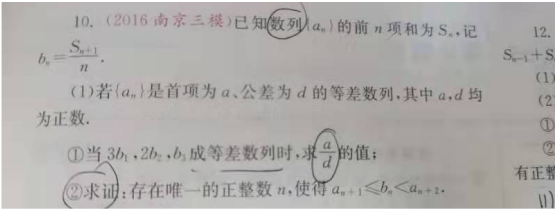 10. (2016 南京三模)已知数列{aₙ}的前 n 项和为 Sₙ,记
bₙ=Sₙ₊₁/n.
(1)若{aₙ}是首项为 a、公差为 d 的等差数列,其中 a,d 均
为正数.
①当 3b₁,2b₂,b₃成等差数列时,求a/d的值;
②求证:存在唯一的正整数 n,使得 aₙ₊₁≤bₙ<aₙ₊₂.
12.
Sₙ₋₁+S
(1)
(2
①
②
有正整